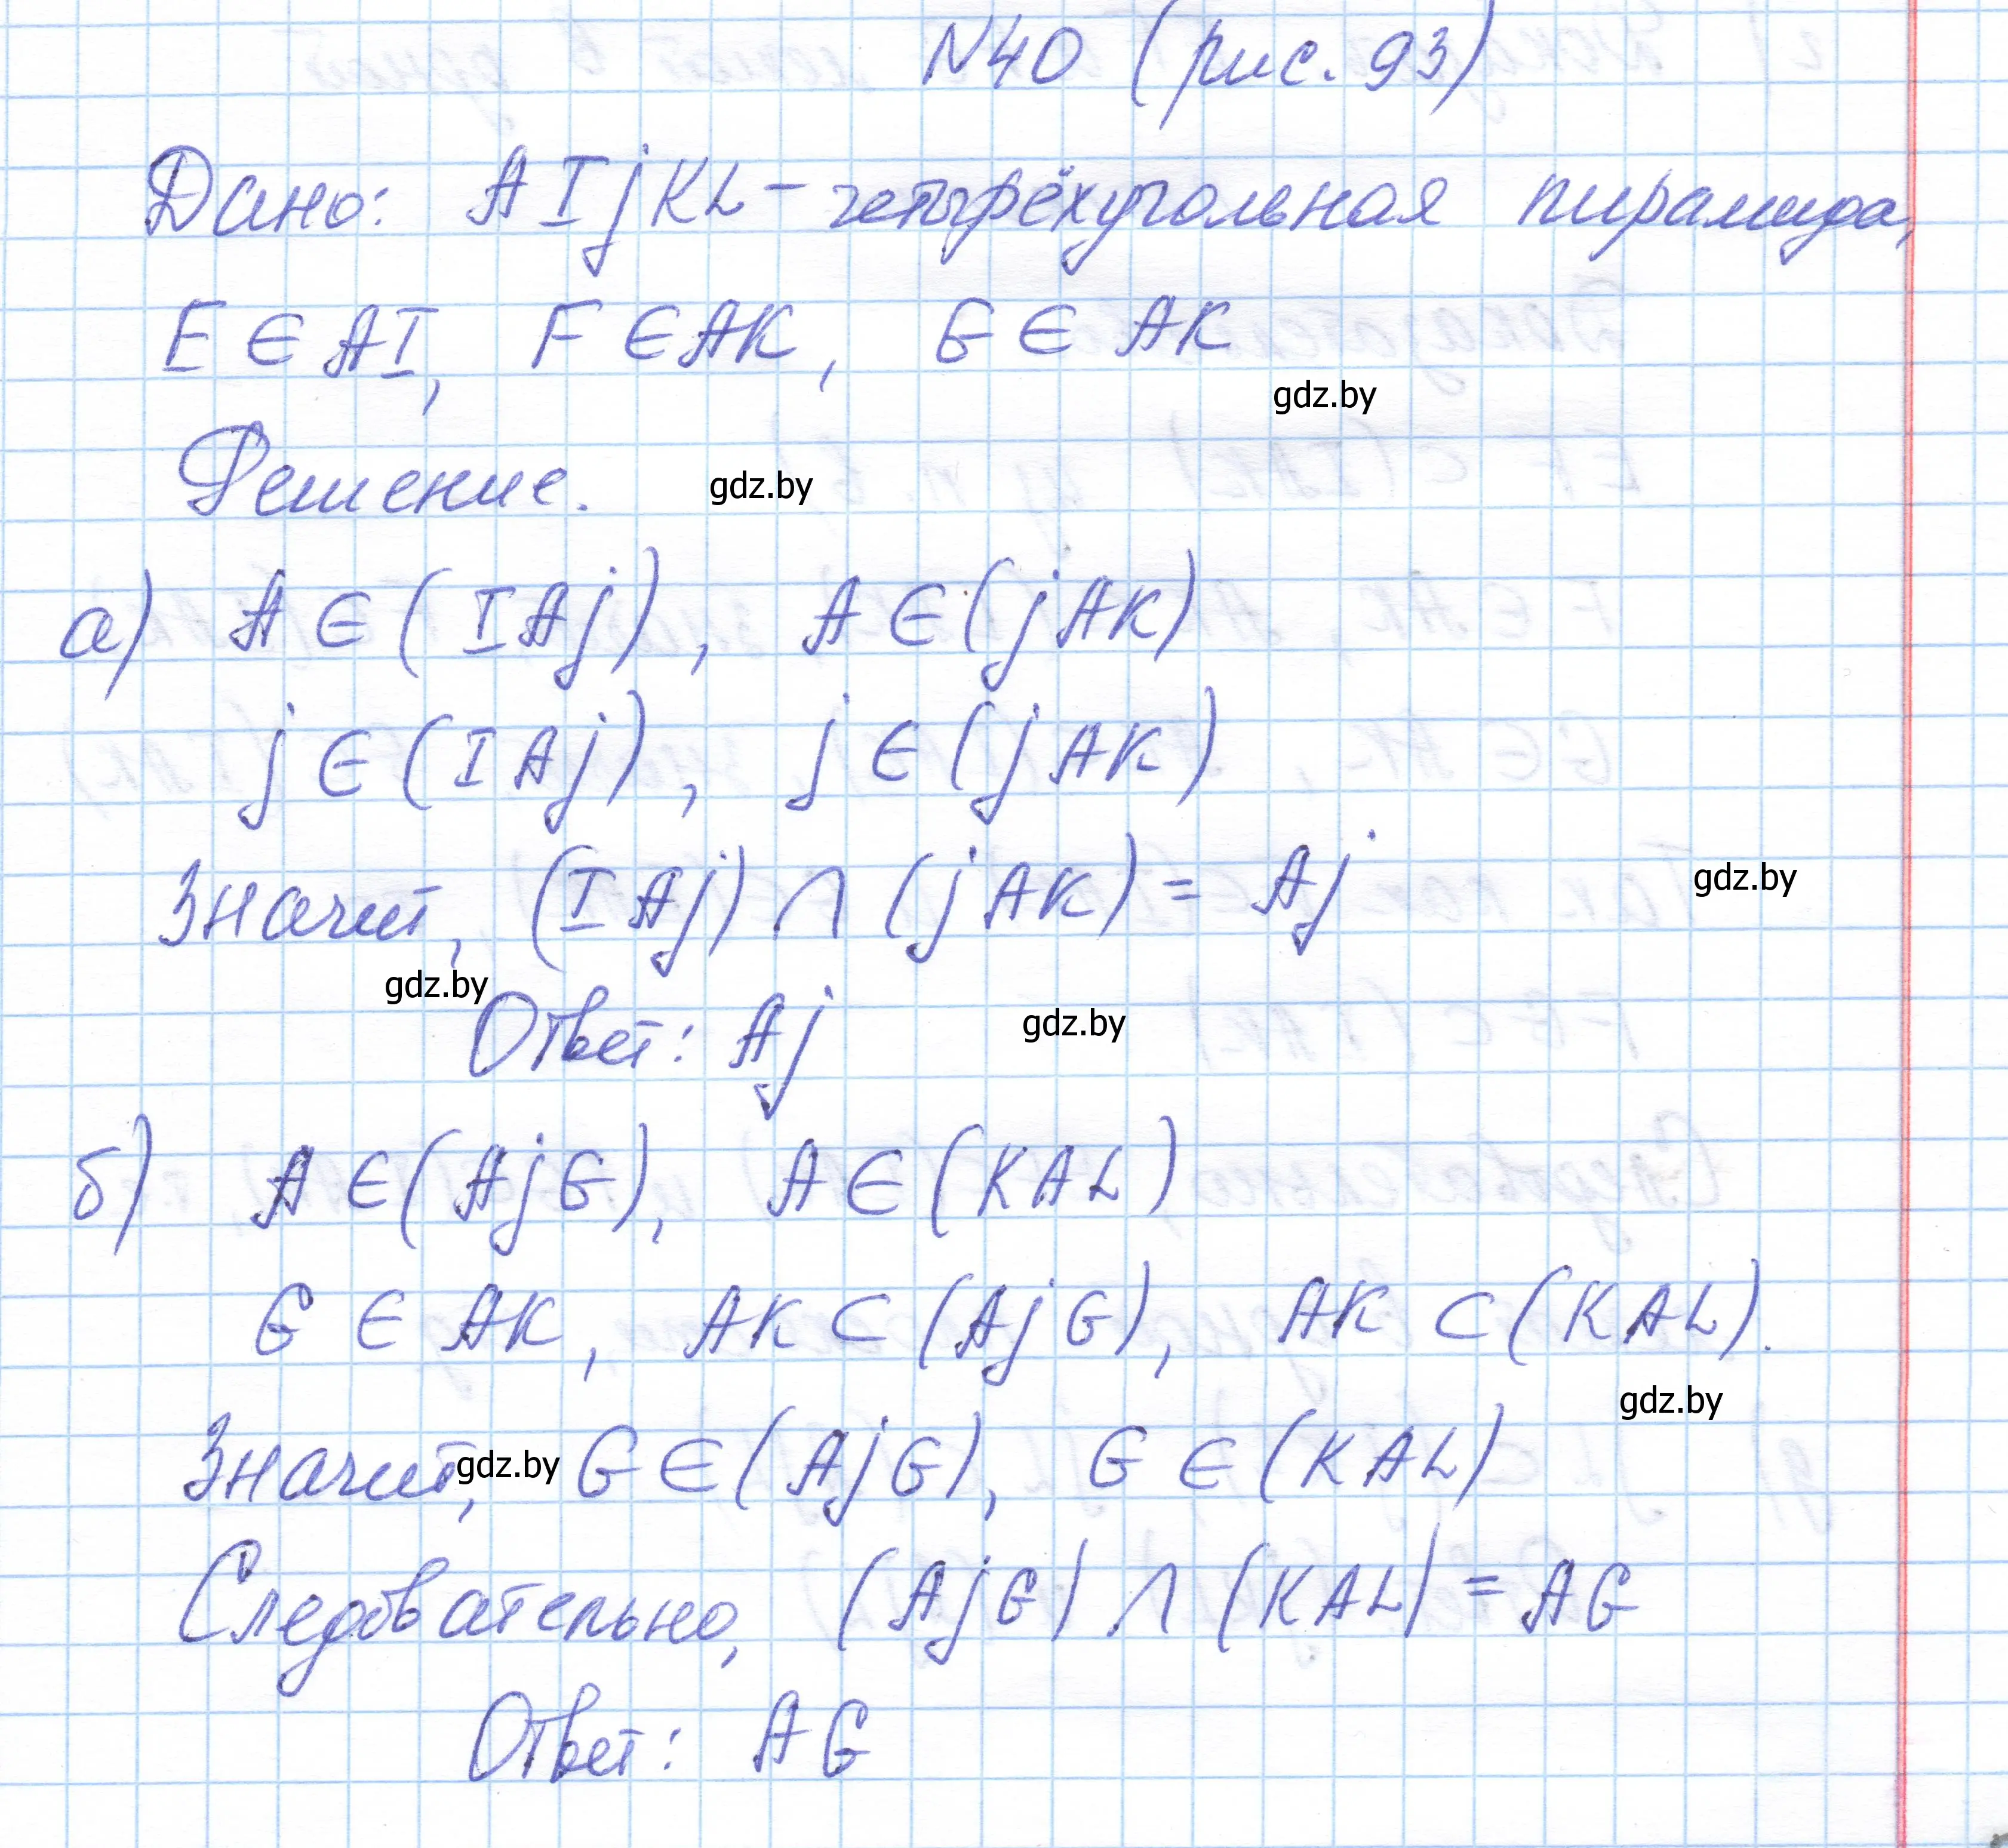 N40 (рис. 93)
Дано: AIjKL - четырёхугольная пирамида,
E ∈ AI, F ∈ AK, G ∈ AK
gdz.by
Решение.
gdz.by
а) A ∈ (IAj), A ∈ (jAK)
j ∈ (IAj), j ∈ (jAK)
Значит, (IAj) ∩ (jAK) = Aj
gdz.by
gdz.by
Ответ: Aj
gdz.by
б) A ∈ (AjG), A ∈ (KAL)
G ∈ AK, AK ⊂ (AjG), AK ⊂ (KAL).
gdz.by
Значит, G ∈ (AjG), G ∈ (KAL)
gdz.by
Следовательно, (AjG) ∩ (KAL) = AG
Ответ: AG